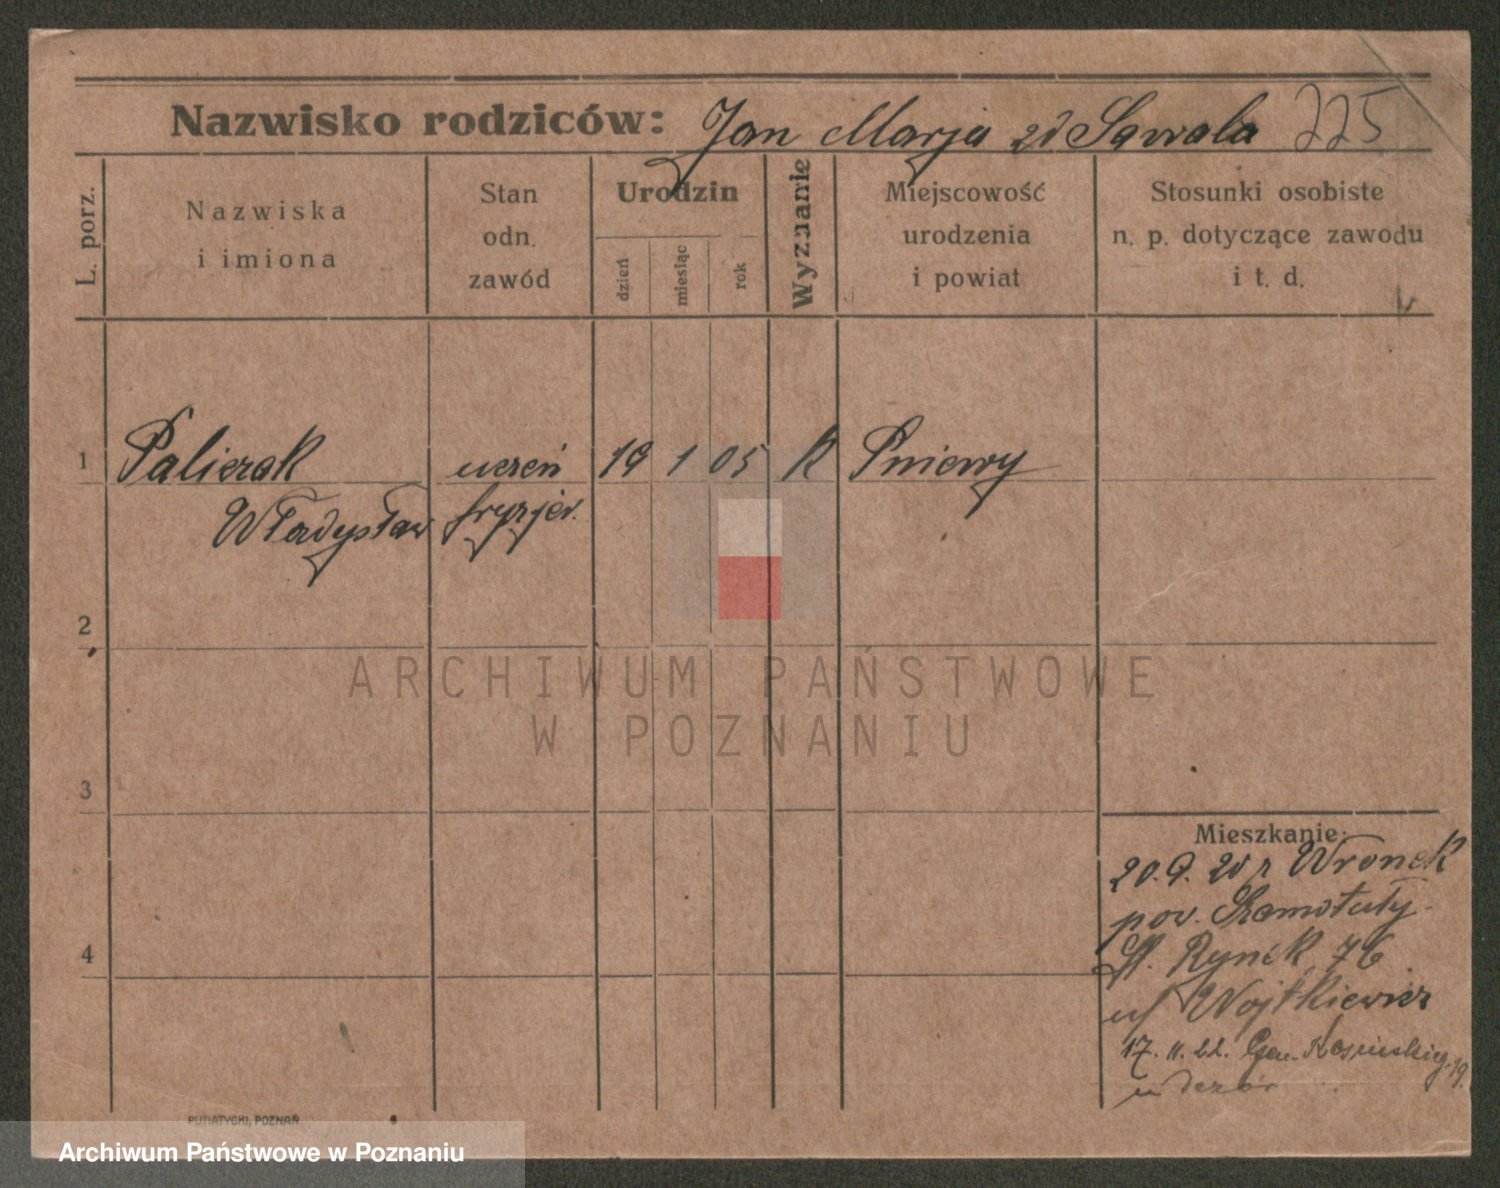 Nazwisko rodziców: Jan Marja zd Sąwala 225
L. porz.
Nazwiska
i imiona
Stan
odn.
zawód
Urodzin
dzień
miesiąc
rok
Wyznanie
Miejscowość
urodzenia
i powiat
Stosunki osobiste
n. p. dotyczące zawodu
i t. d.
1 Palierak uczeń 19 1 05 K Pniewy
Władysław fryzjer.
2
3
4
Mieszkanie:
20.9.20 r Wronek
pow. Szamotuły.
St. Rynek 76
u/ Wojtkiewicz
17.11.22. Gen. Kosińskieg. 19.
u
PUTIATYCKI, POZNAŃ
ARCHIWUM PAŃSTWOWE
W POZNANIU
Archiwum Państwowe w Poznaniu